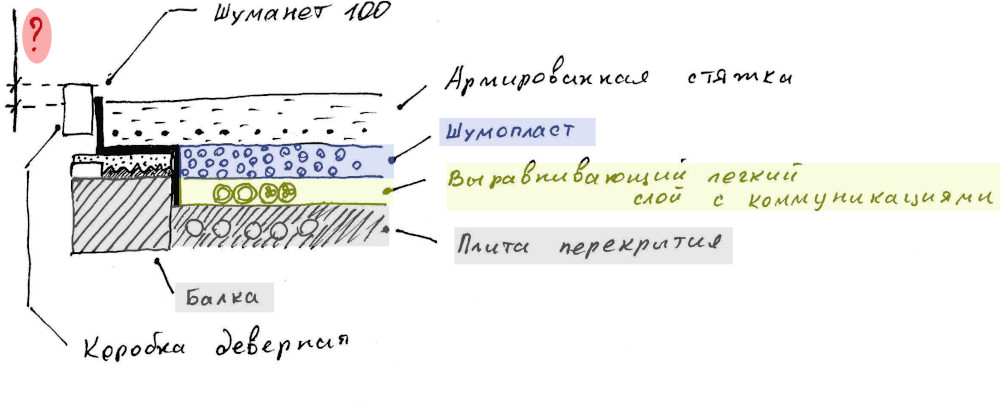 ?
Шуманет 100
Армированная стяжка
Шумопласт
Выравнивающий легкий
слой с коммуникациями
Плита перекрытия
Балка
Коробка деверная